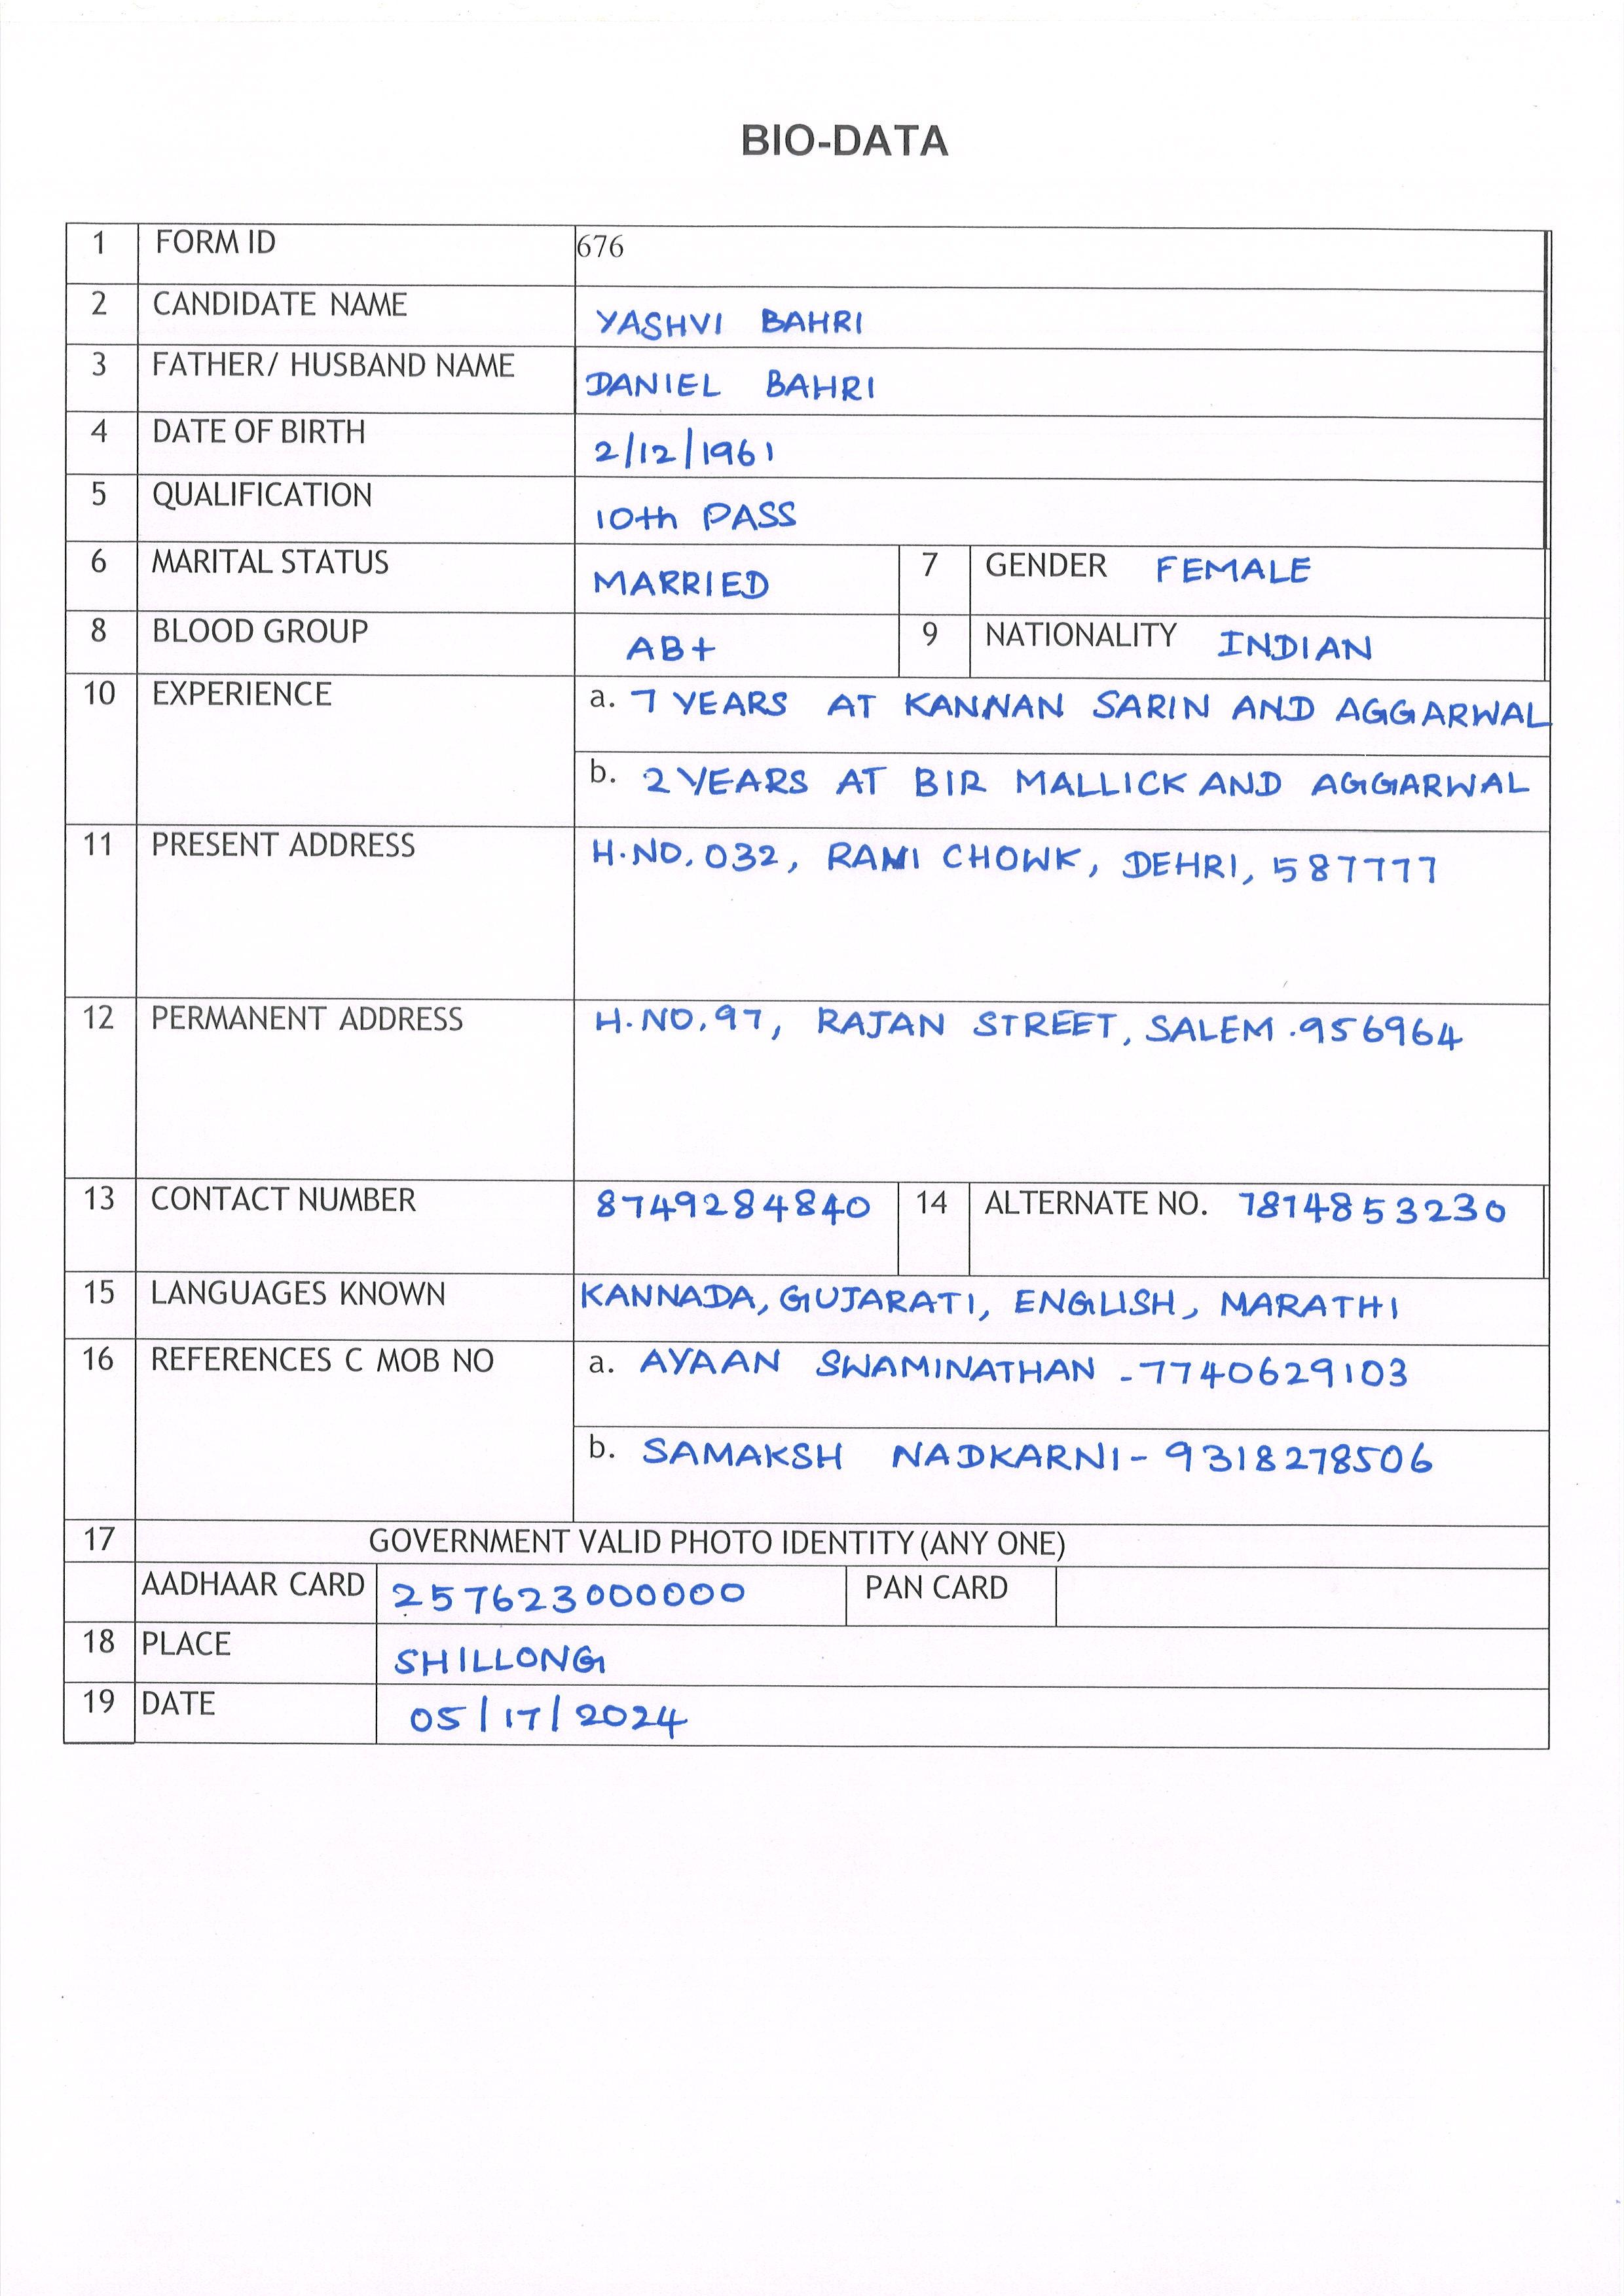 BIO-DATA
1 FORM ID 676
2 CANDIDATE NAME YASHVI BAHRI
3 FATHER/ HUSBAND NAME DANIEL BAHRI
4 DATE OF BIRTH 2/12/1961
5 QUALIFICATION 10th PASS
6 MARITAL STATUS MARRIED 7 GENDER FEMALE
8 BLOOD GROUP AB+ 9 NATIONALITY INDIAN
10 EXPERIENCE a. 7 YEARS AT KANNAN SARIN AND AGGARWAL
b. 2 YEARS AT BIR MALLICK AND AGGARWAL
11 PRESENT ADDRESS H.NO. 032, RAMI CHOWK, DEHRI, 587777
12 PERMANENT ADDRESS H.NO. 97, RAJAN STREET, SALEM .956964
13 CONTACT NUMBER 8749284840 14 ALTERNATE NO. 7814853230
15 LANGUAGES KNOWN KANNADA, GUJARATI, ENGLISH, MARATHI
16 REFERENCES C MOB NO a. AYAAN SWAMINATHAN - 7740629103
b. SAMAKSH NADKARNI - 9318278506
17 GOVERNMENT VALID PHOTO IDENTITY (ANY ONE)
AADHAAR CARD 257623000000 PAN CARD
18 PLACE SHILLONG
19 DATE 05/17/2024